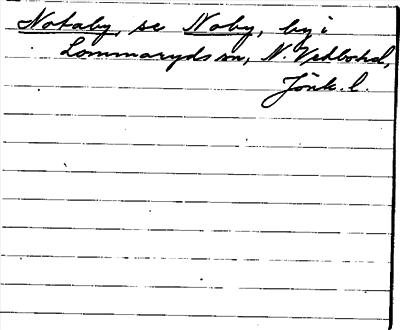 Notaby, se Noby, by i
Lommaryds sn, N. Vedbo hd,
Jönk. l.